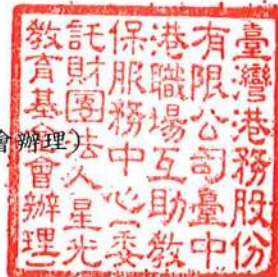 臺灣港務股份
有限公司臺中
港職場互助教
保服務中心(委
託財團法人星光
教育基金會辦理)
會辦理)